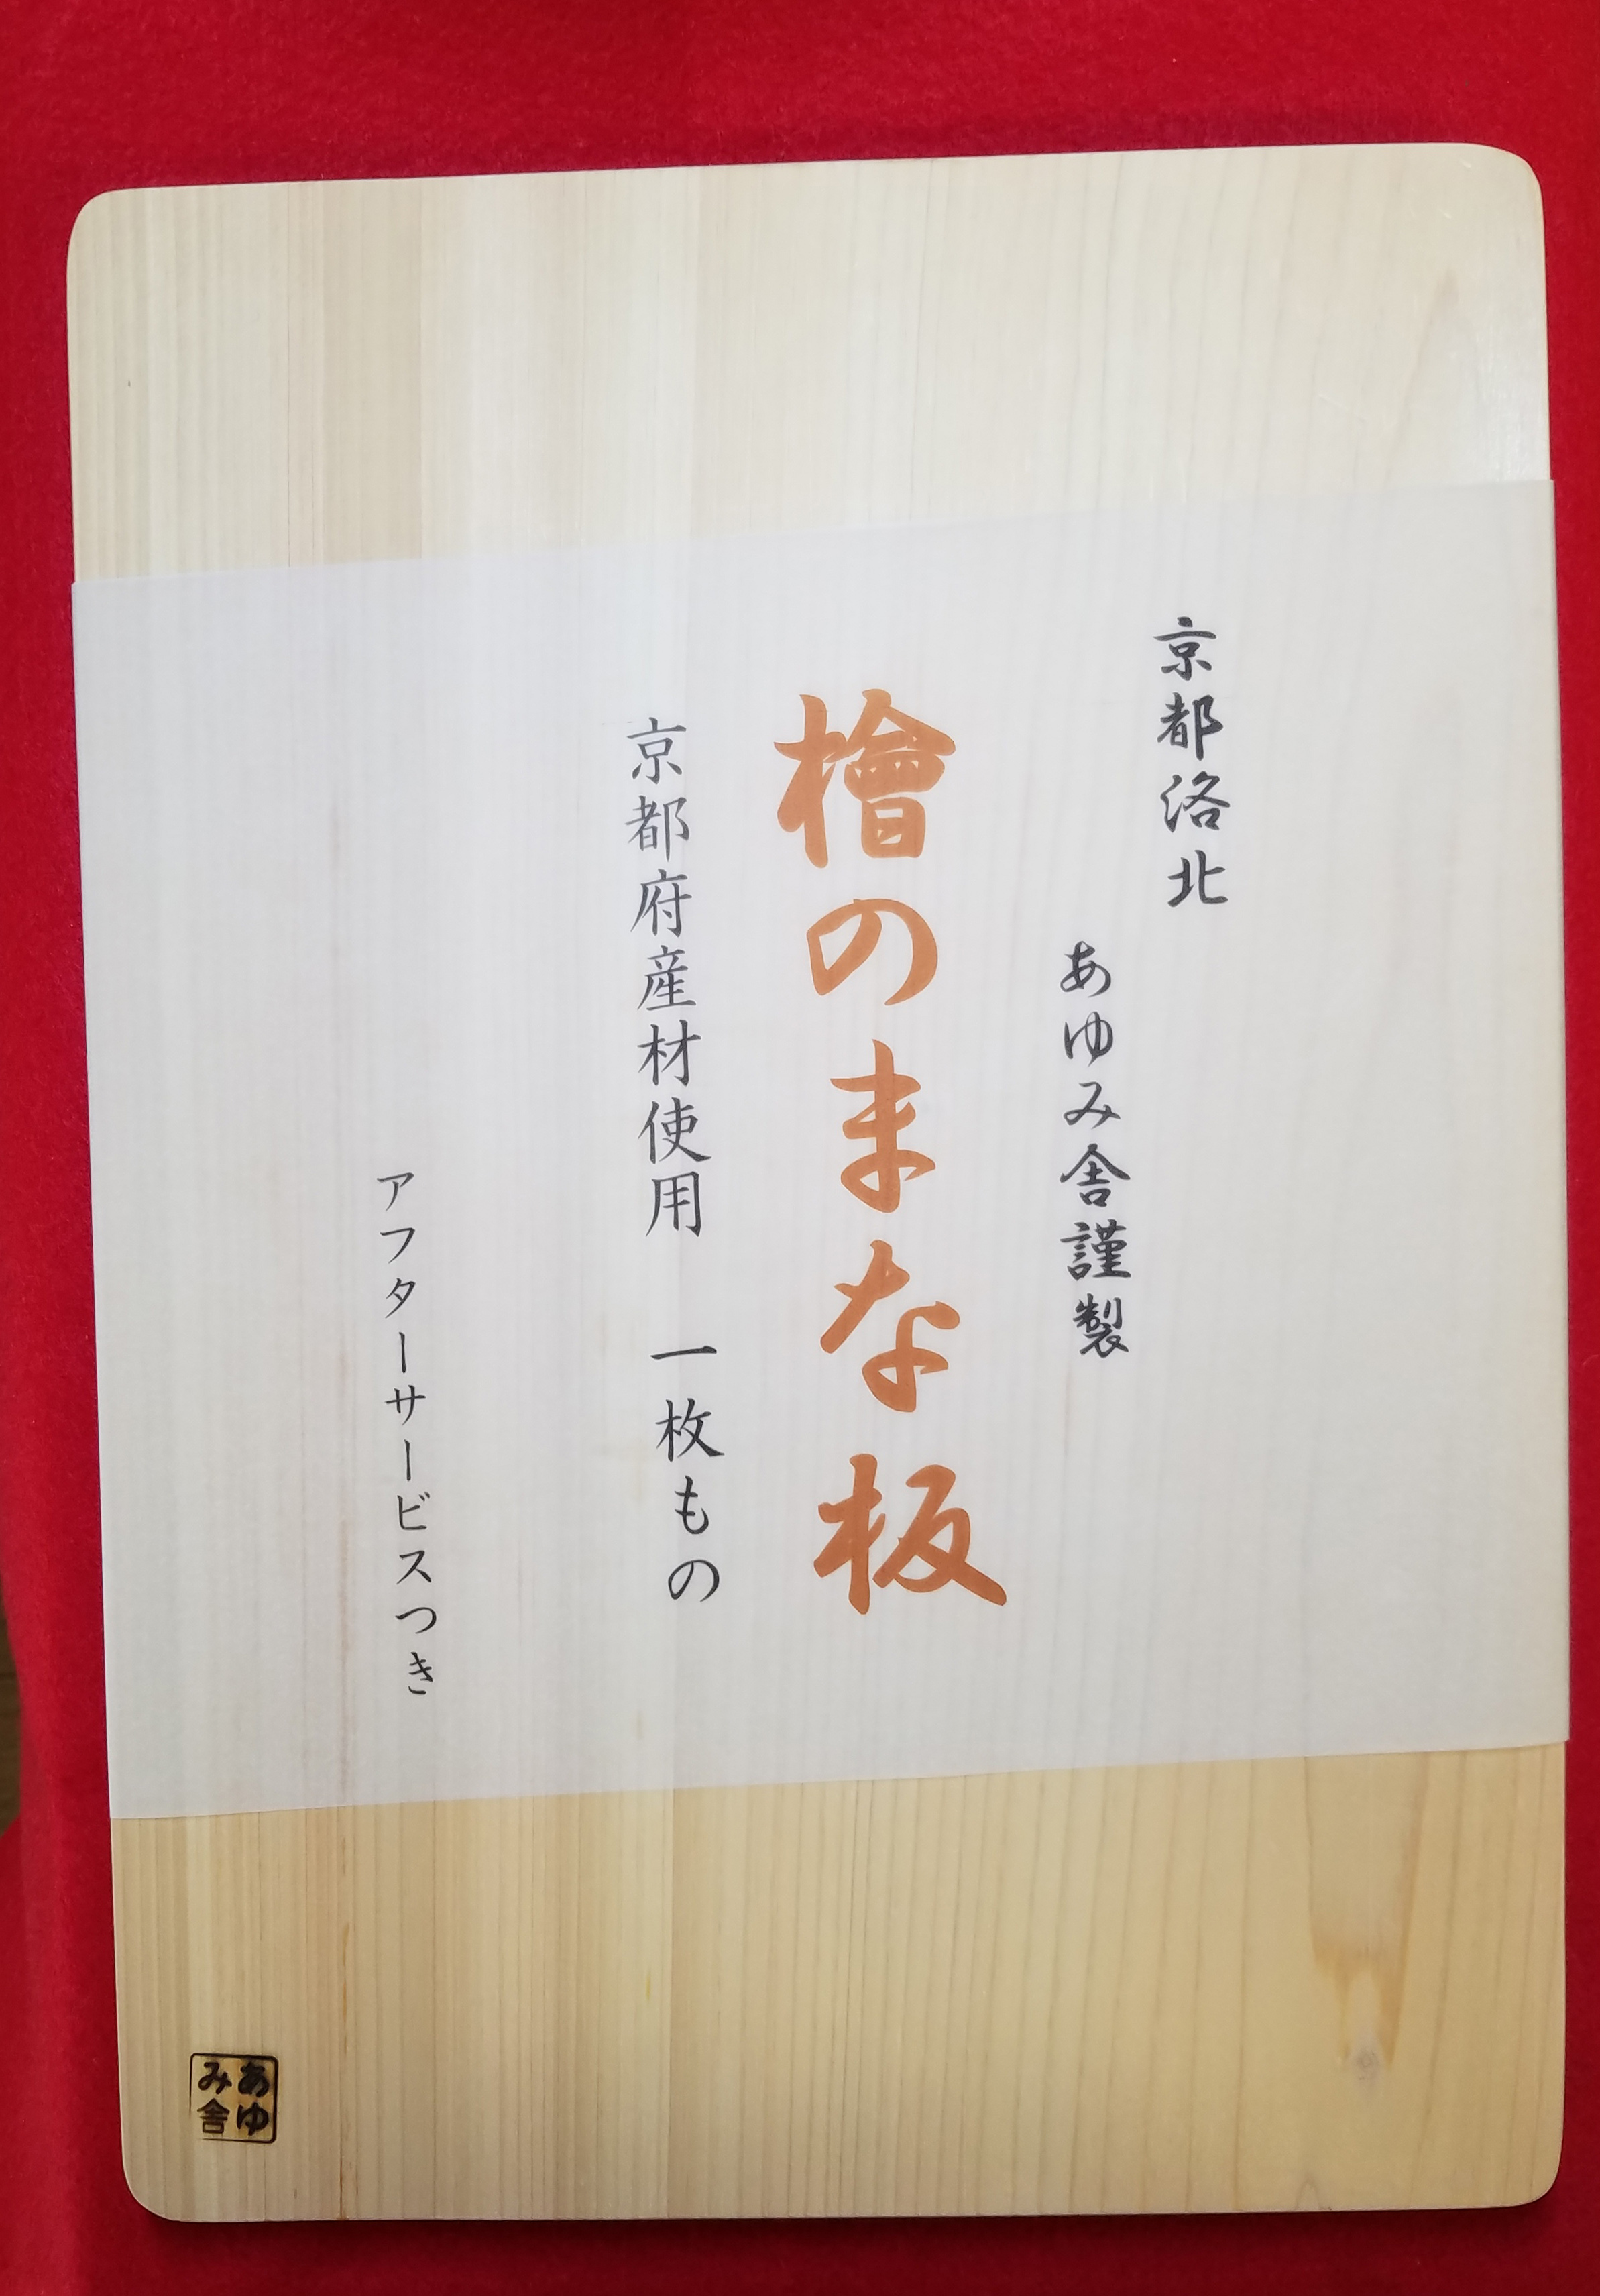 京都洛北
あゆみ舎謹製
檜のまな板
京都府産材使用　一枚もの
アフターサービスつき
あゆ
み舎